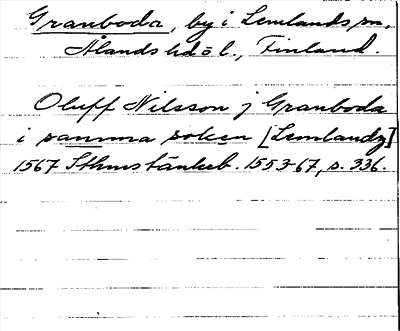 Granboda, by i Lemlands sn,
Ålands hd o l., Finland.
Oluff Nilsson j Granboda
i samma soken [Lemlandz]
1567 Sthms tänkeb. 1553-67, s. 336.